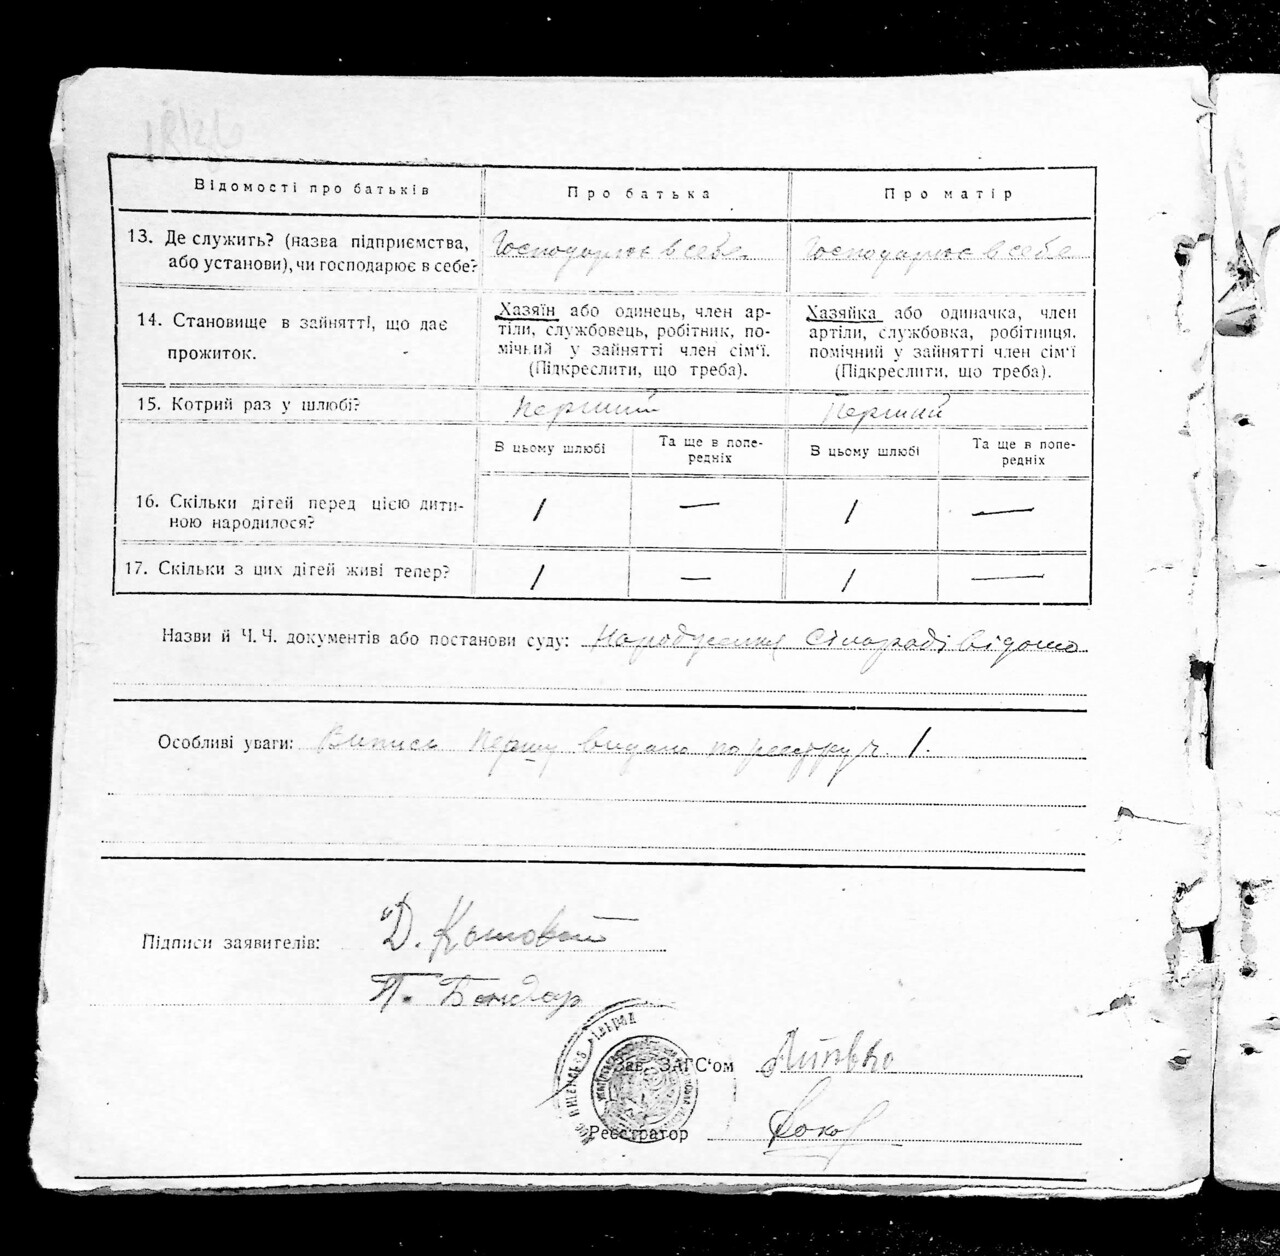 Відомості про батьків
Про батька
Про матір
13. Де служить? (назва підприємства,
або установи), чи господарює в себе?
Господарює в себе
Господарює в себе
14. Становище в зайнятті, що дає
прожиток.
Хазяїн або одинець, член ар-
тіли, службовець, робітник, по-
мічний у зайнятті член сім'ї.
(Підкреслити, що треба).
Хазяйка або одиначка, член
артіли, службовка, робітниця.
помічний у зайнятті член сім'ї
(Підкреслити, що треба).
15. Котрий раз у шлюбі?
Перший
Перший
В цьому шлюбі
Та ще в попе-
редніх
В цьому шлюбі
Та ще в попе-
редніх
16. Скільки дітей перед цією дити-
ною народилося?
1 — 1 —
17. Скільки з цих дітей живі тепер?
1 — 1 —
Назви й Ч.Ч. документів або постанови суду: Народження Сільраді відомо
Особливі уваги: Випись першу видано по реєстру ч. 1.
Підписи заявителів: Д. Котовий
П. Бондар
Зав. ЗАГС'ом
Реєстратор